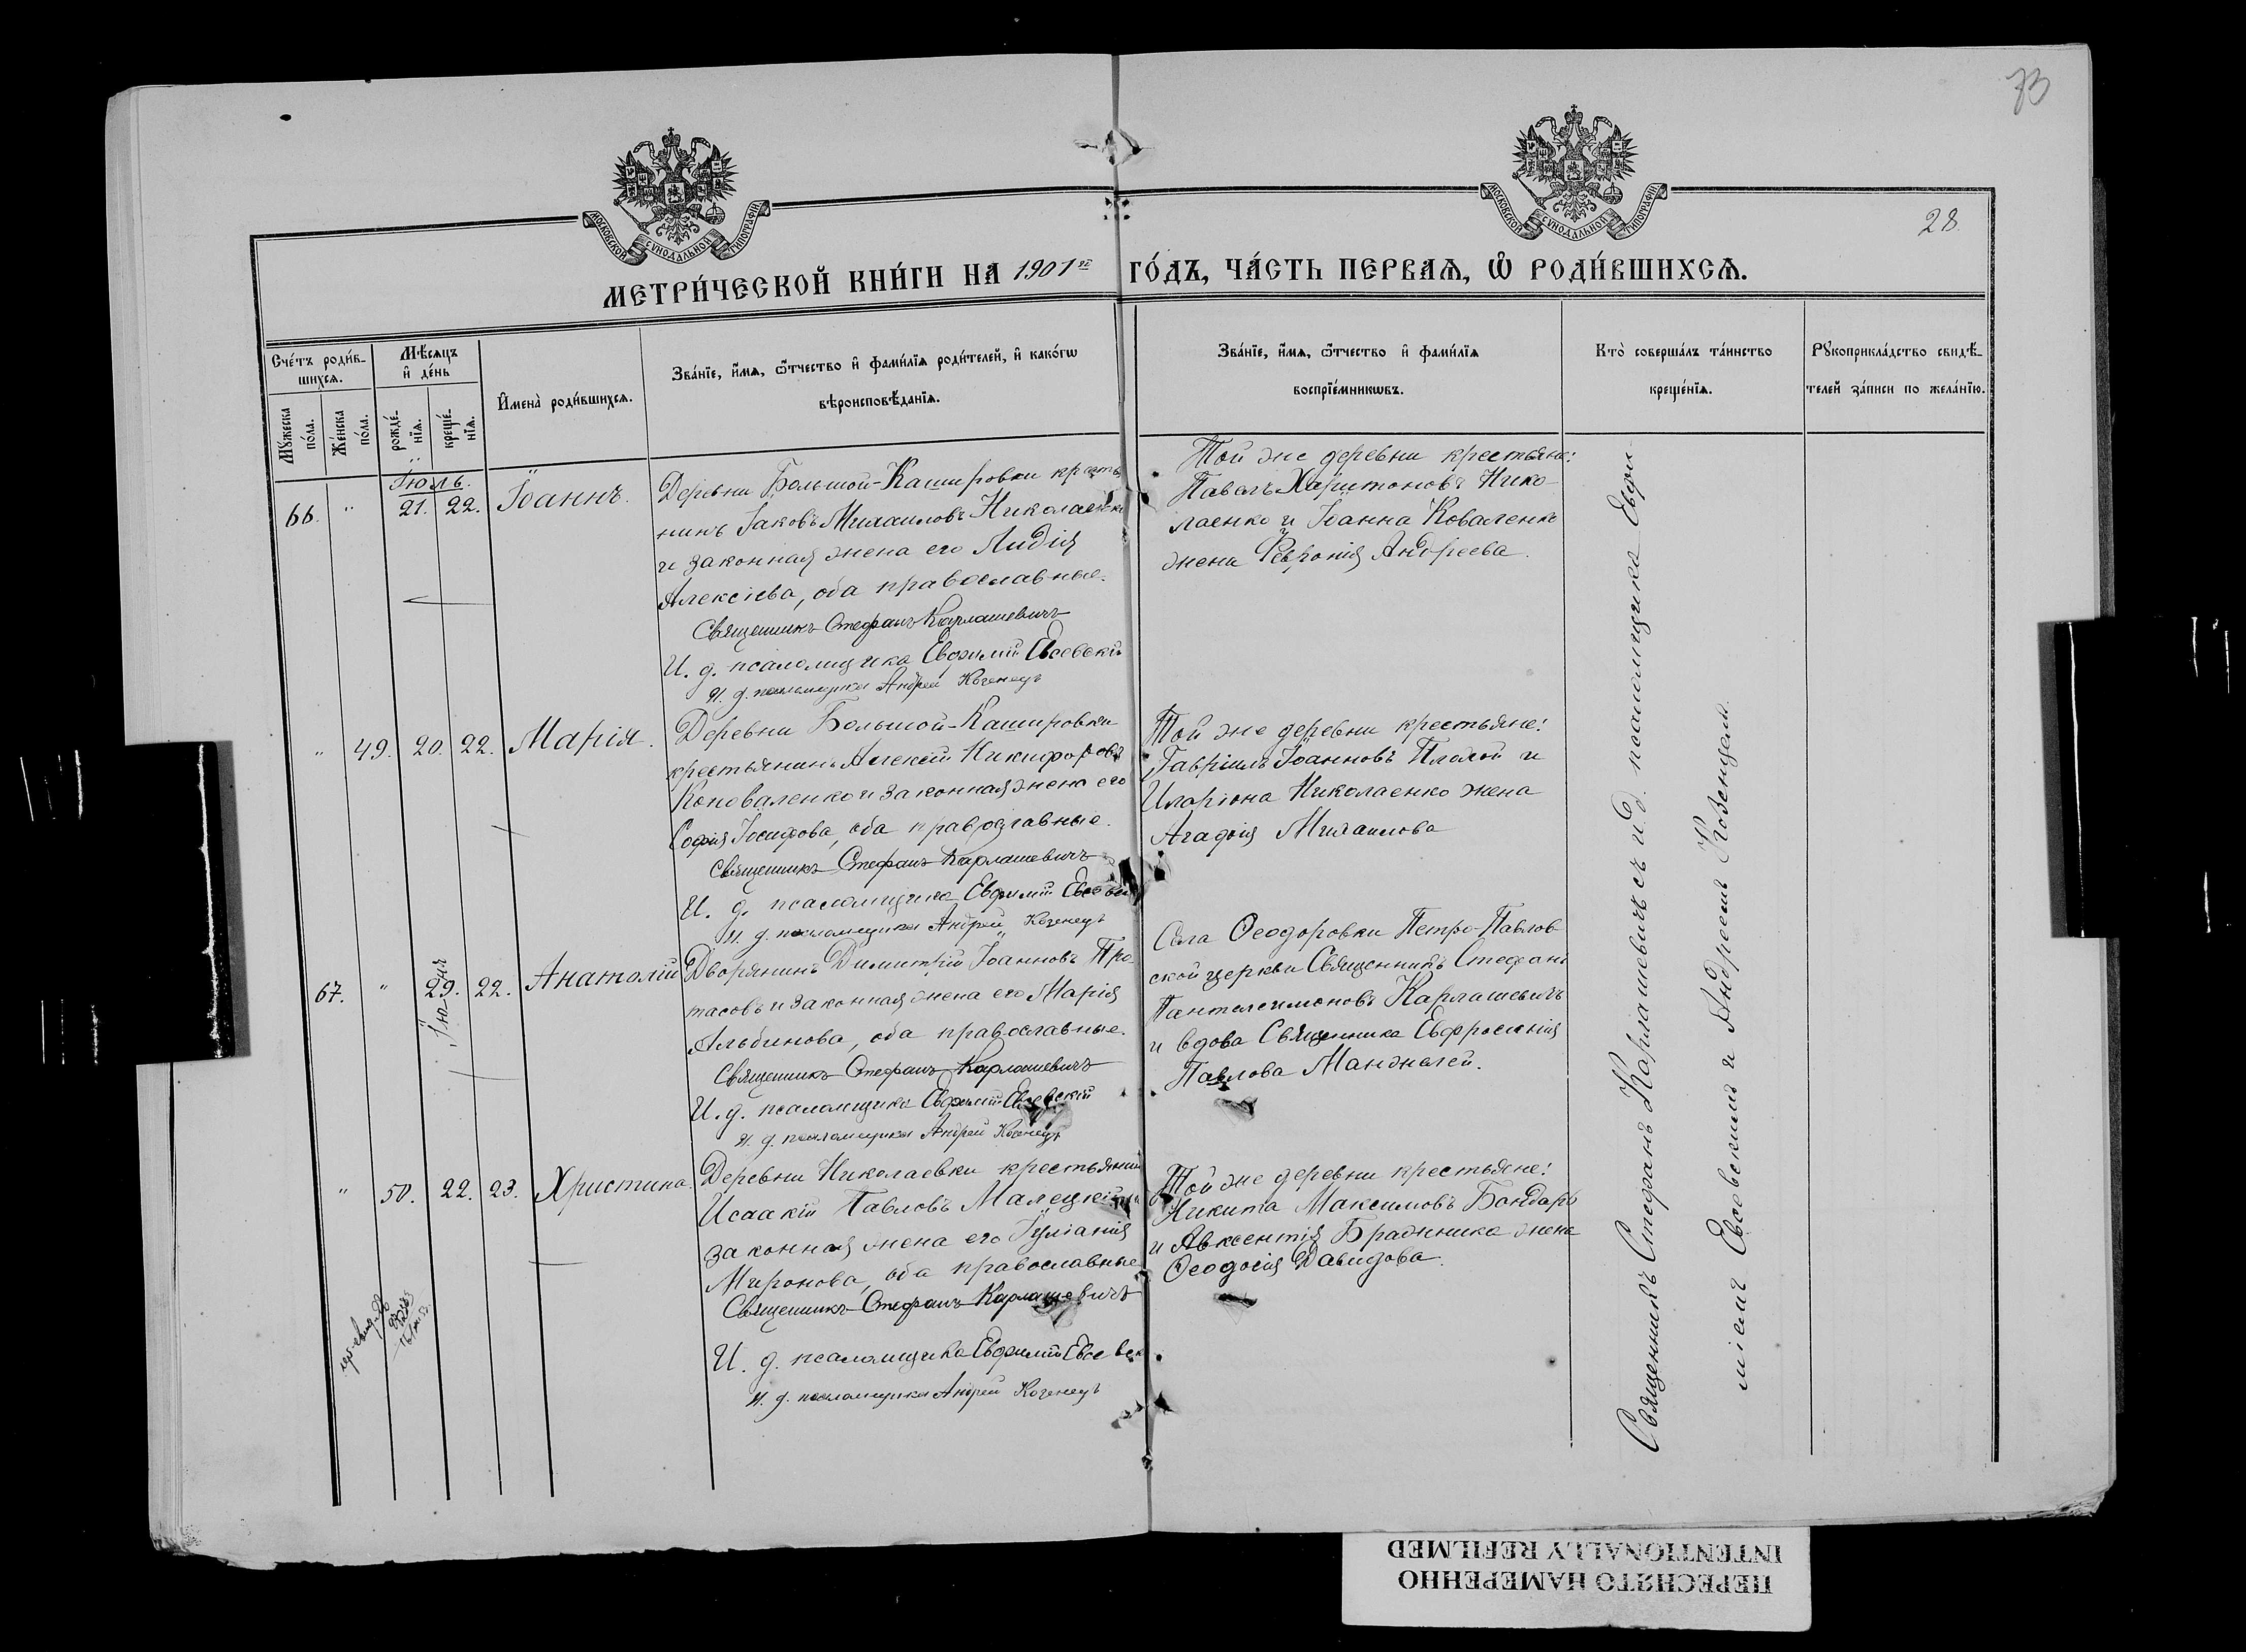 73
28.
МОСКОВСКОЙ СѴНОДАЛЬНОЙ ТИПОГРАФІИ
МОСКОВСКОЙ СѴНОДАЛЬНОЙ ТИПОГРАФІИ
МЕТРИ́ЧЕСКОЙ КНИ́ГИ НА 1901й ГО́ДЪ, ЧА́СТЬ ПЕРВАѦ, Ѡ҆ РОДИ́ВШИХСѦ.
Сче́тъ роди́в-
шихсѧ.
Мꙋ́жеска
по́ла.
Же́нска
по́ла.
Мѣ́сѧцъ
и҆ де́нь
рожде́-
нїѧ.
креще́-
нїѧ.
И҆мена̀ роди́вшихсѧ.
Зва́нїе, и҆́мѧ, ѻ҆́тчество и҆ фами́лїѧ роди́телей, и҆ како́гѡ
вѣроисповѣ́данїѧ.
Зва́нїе, и҆́мѧ, ѻ҆́тчество и҆ фами́лїѧ
воспрїе́мникѡвъ.
Кто̀ соверша́лъ та́инство
креще́нїѧ.
Рꙋкоприкла́дство свидѣ́-
телей за́писи по жела́нїю.
Іюль.
66. " 21. 22. Іоаннъ.
Деревни Большой-Кашировки крестья
нинъ Іаковъ Михаиловъ Николаенко
и законная жена его Лидія
Алексіева, оба православные.
Священникъ Стефанъ Карлашевичъ
И. д. псаломщика Евфимій Евсевскій
И. д. псаломщика Андрей Когенецъ
Той же деревни крестьяне:
Павелъ Харитоновъ Нико
лаенко и Іоанна Коваленко
жена Февронія Андреева.
" 49. 20. 22. Марія.
Деревни Большой-Кашировки
крестьянинъ Алексій Никифоровъ
Коноваленко и законная жена его
Софія Іосифова, оба православные.
Священникъ Стефанъ Карлашевичъ
И. д. псаломщика Евфимій
И. д. псаломщика Андрей Когенецъ
Той же деревни крестьяне:
Гавріилъ Іоанновъ и
Иларіона Николаенко жена
Агафія Михаилова
67. " Іюня 29. 22. Анатолій
Дворянинъ Димитрій Іоанновъ Про
тасовъ и законная жена его Марія
Альбинова, оба православные.
Священникъ Стефанъ Карлашевичъ
И. д. псаломщика Евфимій Евсевскій
И. д. псаломщика Андрей Когенецъ
Села Ѳеодоровки Петро-Павлов
ской церкви Священникъ Стефанъ
Пантелеимоновъ Карлашевичъ
и вдова Священника Евфросинія
Павлова Манжелей.
" 50. 22. 23. Христина.
Деревни Николаевки крестьянинъ
Исаакій Павловъ Малецкій и
законная жена его Іуліанія
Миронова, оба православные
Священникъ Стефанъ Карлашевичъ
И. д. псаломщика Евфимій Евсевск
И. д. псаломщика Андрей Когенецъ
Той же деревни крестьяне:
Никита Максимовъ Бондарь
и Авксентія Бражника жена
Ѳеодосія Давидова.
Священникъ Стефанъ Карлашевичъ съ и. д. псаломщика Евфи
міемъ Евсевскимъ и Андреемъ Когенцемъ.
ПЕРЕСНЯТО НАМЕРЕННО
INTENTIONALLY REFILMED